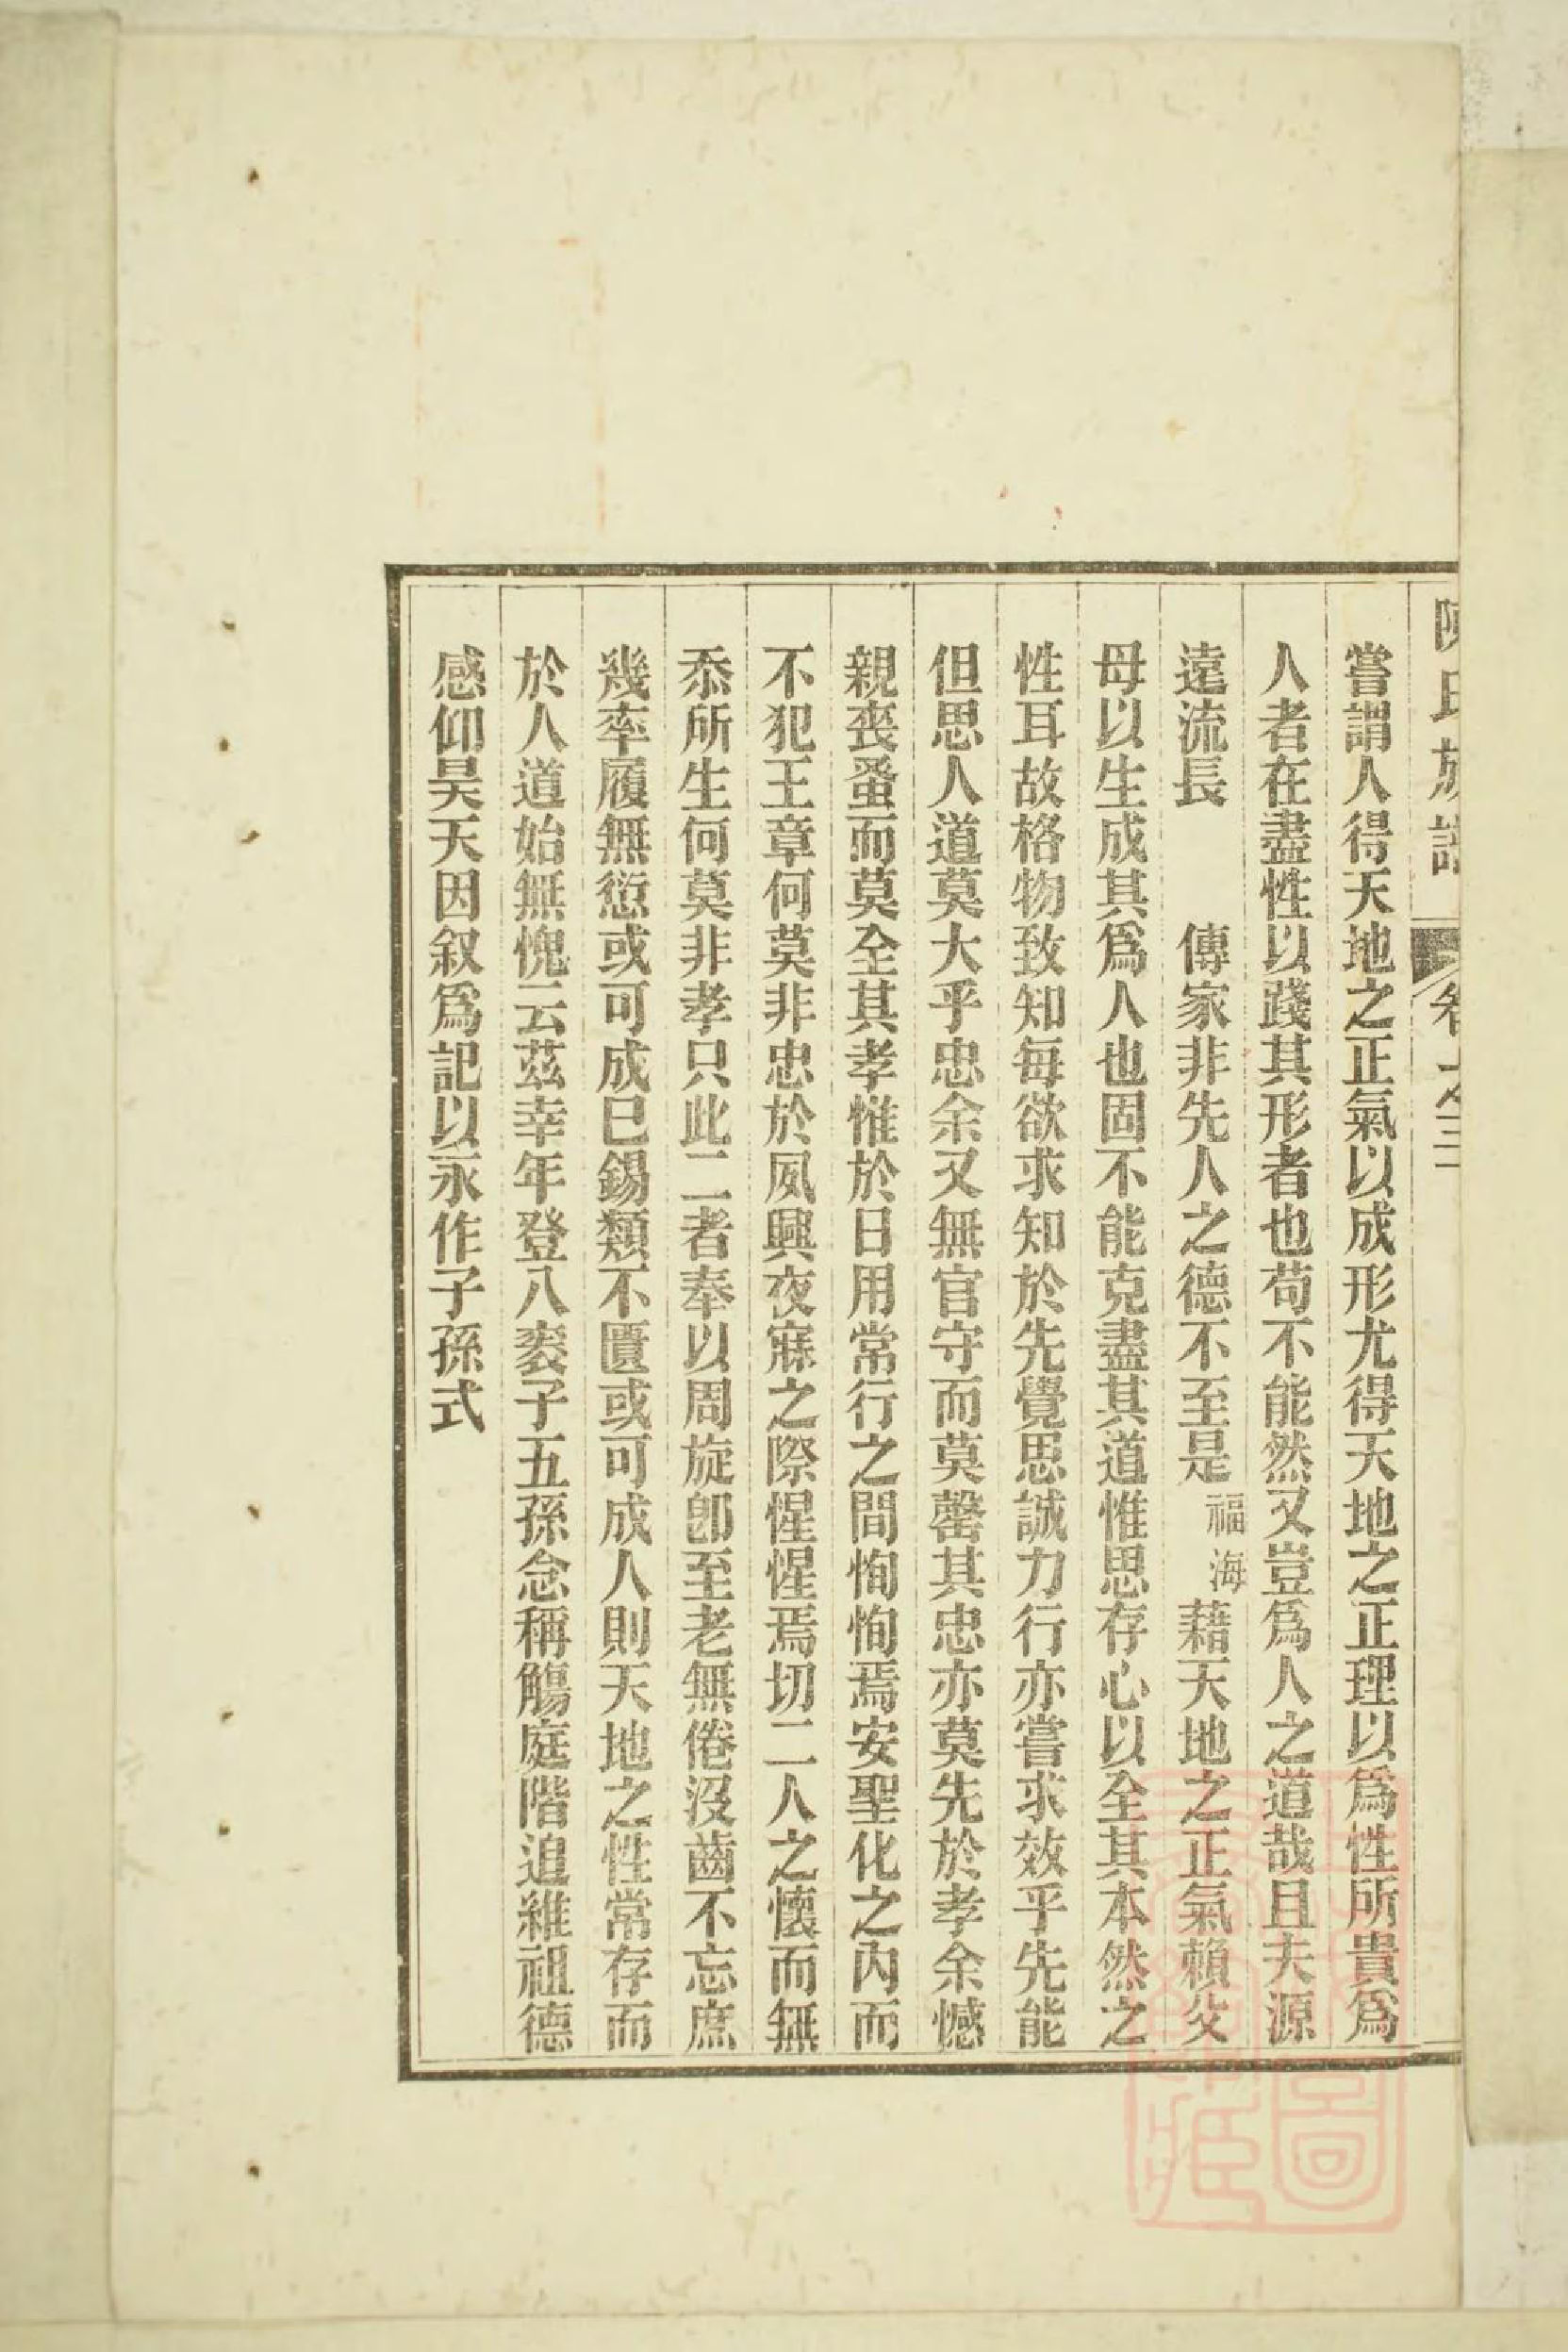 陳氏族譜 卷之三
嘗謂人得天地之正氣以成形尤得天地之正理以爲性所貴爲
人者在盡性以踐其形者也苟不能然又豈爲人之道哉且夫源
遠流長　傳家非先人之德不至是福海藉天地之正氣賴父
母以生成其爲人也固不能克盡其道惟思存心以全其本然之
性耳故格物致知每欲求知於先覺思誠力行亦嘗求效乎先能
但思人道莫大乎忠余又無官守而莫罄其忠亦莫先於孝余憾
親喪蚤而莫全其孝惟於日用常行之間恂恂焉安聖化之內而
不犯王章何莫非忠於夙興夜寐之際惺惺焉切二人之懷而無
忝所生何莫非孝只此二者奉以周旋卽至老無倦沒齒不忘庶
幾率履無愆或可成已錫類不匱或可成人則天地之性常存而
於人道始無愧云茲幸年登八袠子五孫念稱觴庭階追維祖德
感仰昊天因叙爲記以永作子孫式